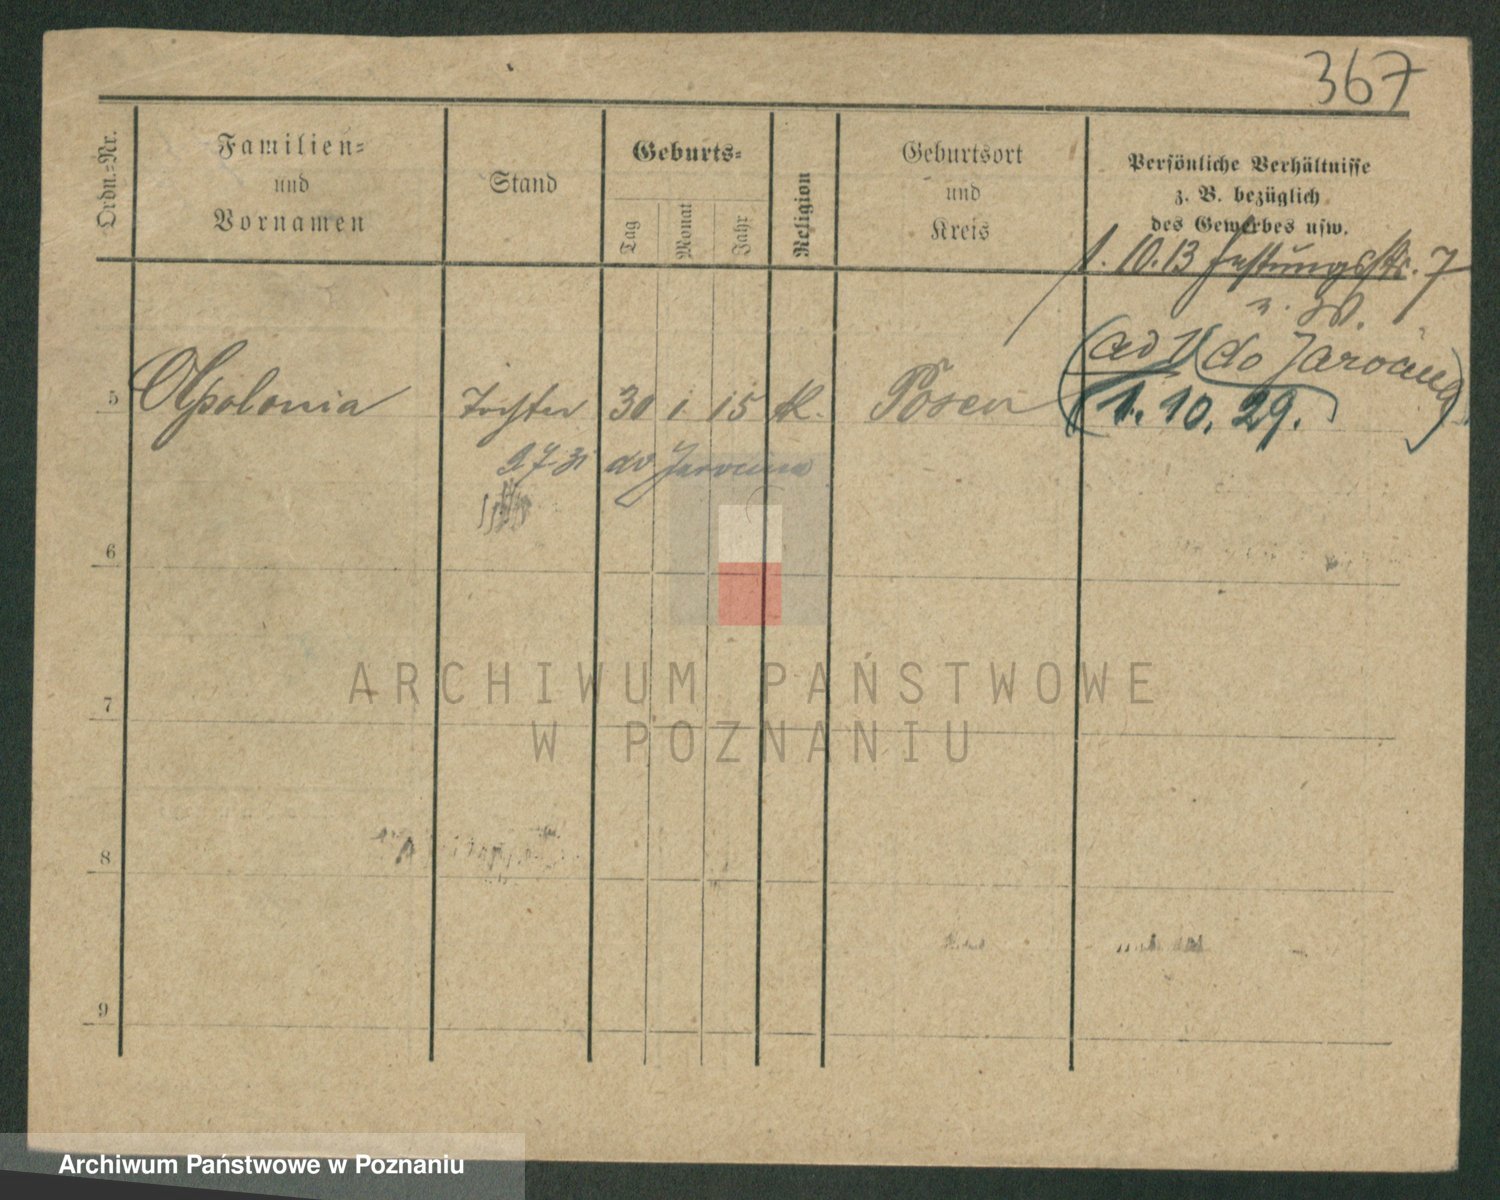 367
Ordn.=Nr.
Familien=
und
Vornamen
Stand
Geburts=
Tag
Monat
Jahr
Religion
Geburtsort
und
Kreis
Persönliche Verhältnisse
z. B. bezüglich
des Gewerbes usw.
1. 10. 13 Festungsstr. 7
(ad 1) (do Jarocina)
5 Apolonia Tochter 30 1 15 K. Posen
1. 10. 29.
do Jarocina
6
7
8
9
ARCHIWUM PAŃSTWOWE
W POZNANIU
Archiwum Państwowe w Poznaniu